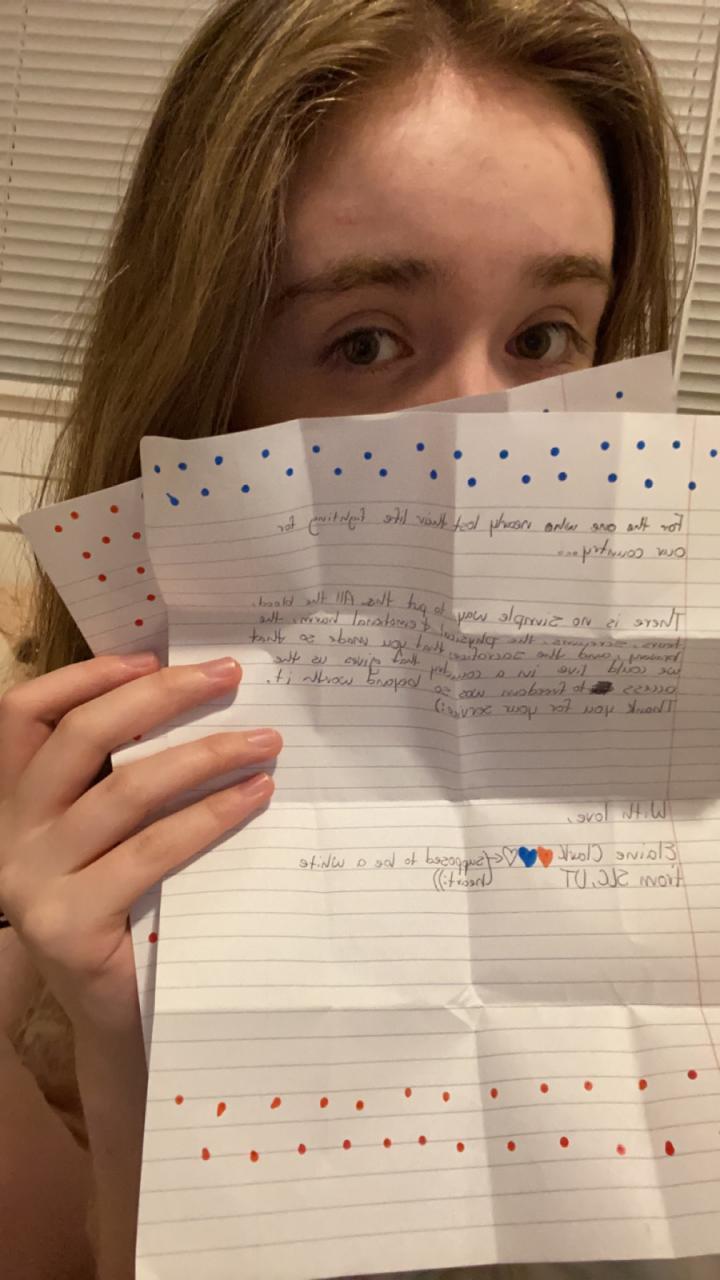 For the one who nearly lost their life fighting for
our country...
There is no simple way to put this. All the blood,
tears, screams, the physical & emotional harm, the
bravery, and the sacrifices that you made so that
we could live in a country that gives us the
access to freedom was so beyond worth it.
Thank you for your service:)
With love,
Elaine Clark (supposed to be a white
from SLC, UT heart:))